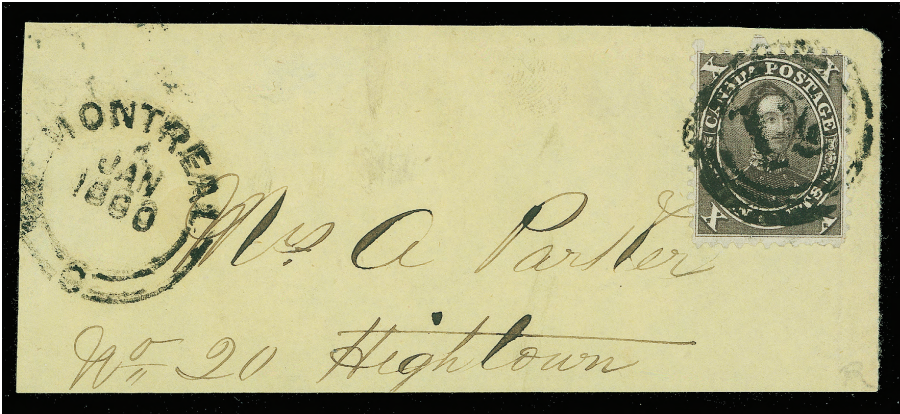 MONTREAL
JAN
1860
C
X CANADA POSTAGE X
X
Mrs A Parker
No 20 Hightown